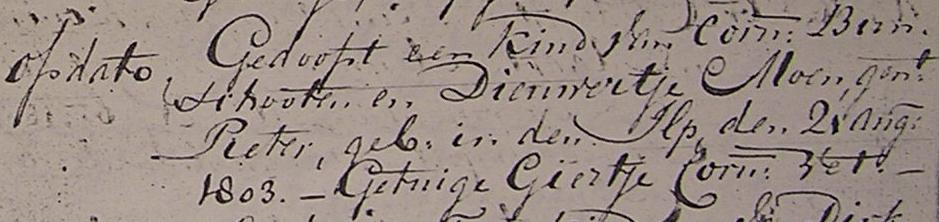 op dato, Gedoopt een kind van Corn: Bun-
schooten en Dieuwertje Moen, gent
Pieter, geb: in den Ilp, den 2 aug:
1803. – Getuige Giertje Corn:
Dirk